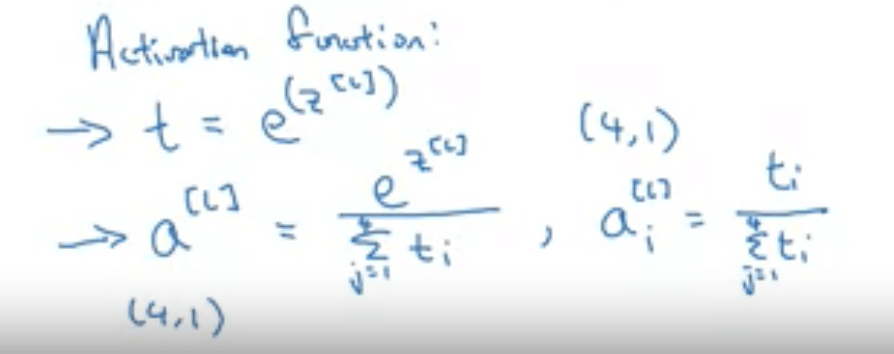 Activation function:
→ t = e^(z^[L]) (4,1)
→ a^[L] = e^z^[L] / ∑_{j=1}^{4} t_i , a_i^[L] = t_i / ∑_{j=1}^{4} t_i
(4,1)